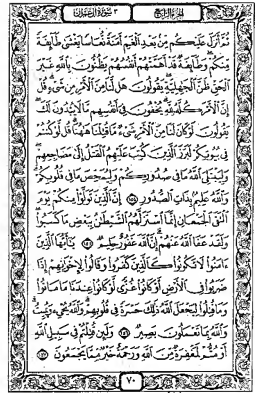 الجزء الرابع ٣ سورة آل عمران
ثم أنزل عليكم من بعد الغم أمنة نعاسا يغشى طائفة
منكم وطائفة قد أهمتهم أنفسهم يظنون بالله غير
الحق ظن الجاهلية يقولون هل لنا من الأمر من شيء قل
إن الأمر كله لله يخفون في أنفسهم ما لا يبدون لك
يقولون لو كان لنا من الأمر شيء ما قتلنا ههنا قل لو كنتم
في بيوتكم لبرز الذين كتب عليهم القتل إلى مضاجعهم
وليبتلي الله ما في صدوركم وليمحص ما في قلوبكم
والله عليم بذات الصدور ١٥٤ إن الذين تولوا منكم يوم
التقى الجمعان إنما استزلهم الشيطان ببعض ما كسبوا
ولقد عفا الله عنهم إن الله غفور حليم ١٥٥ يأيها الذين
ءامنوا لا تكونوا كالذين كفروا وقالوا لإخوانهم إذا
ضربوا في الأرض أو كانوا غزى لو كانوا عندنا ما ماتوا
وما قتلوا ليجعل الله ذلك حسرة في قلوبهم والله يحي ويميت
والله بما تعملون بصير ١٥٦ ولئن قتلتم في سبيل الله
أو متم لمغفرة من الله ورحمة خير مما يجمعون ١٥٧
٧٠